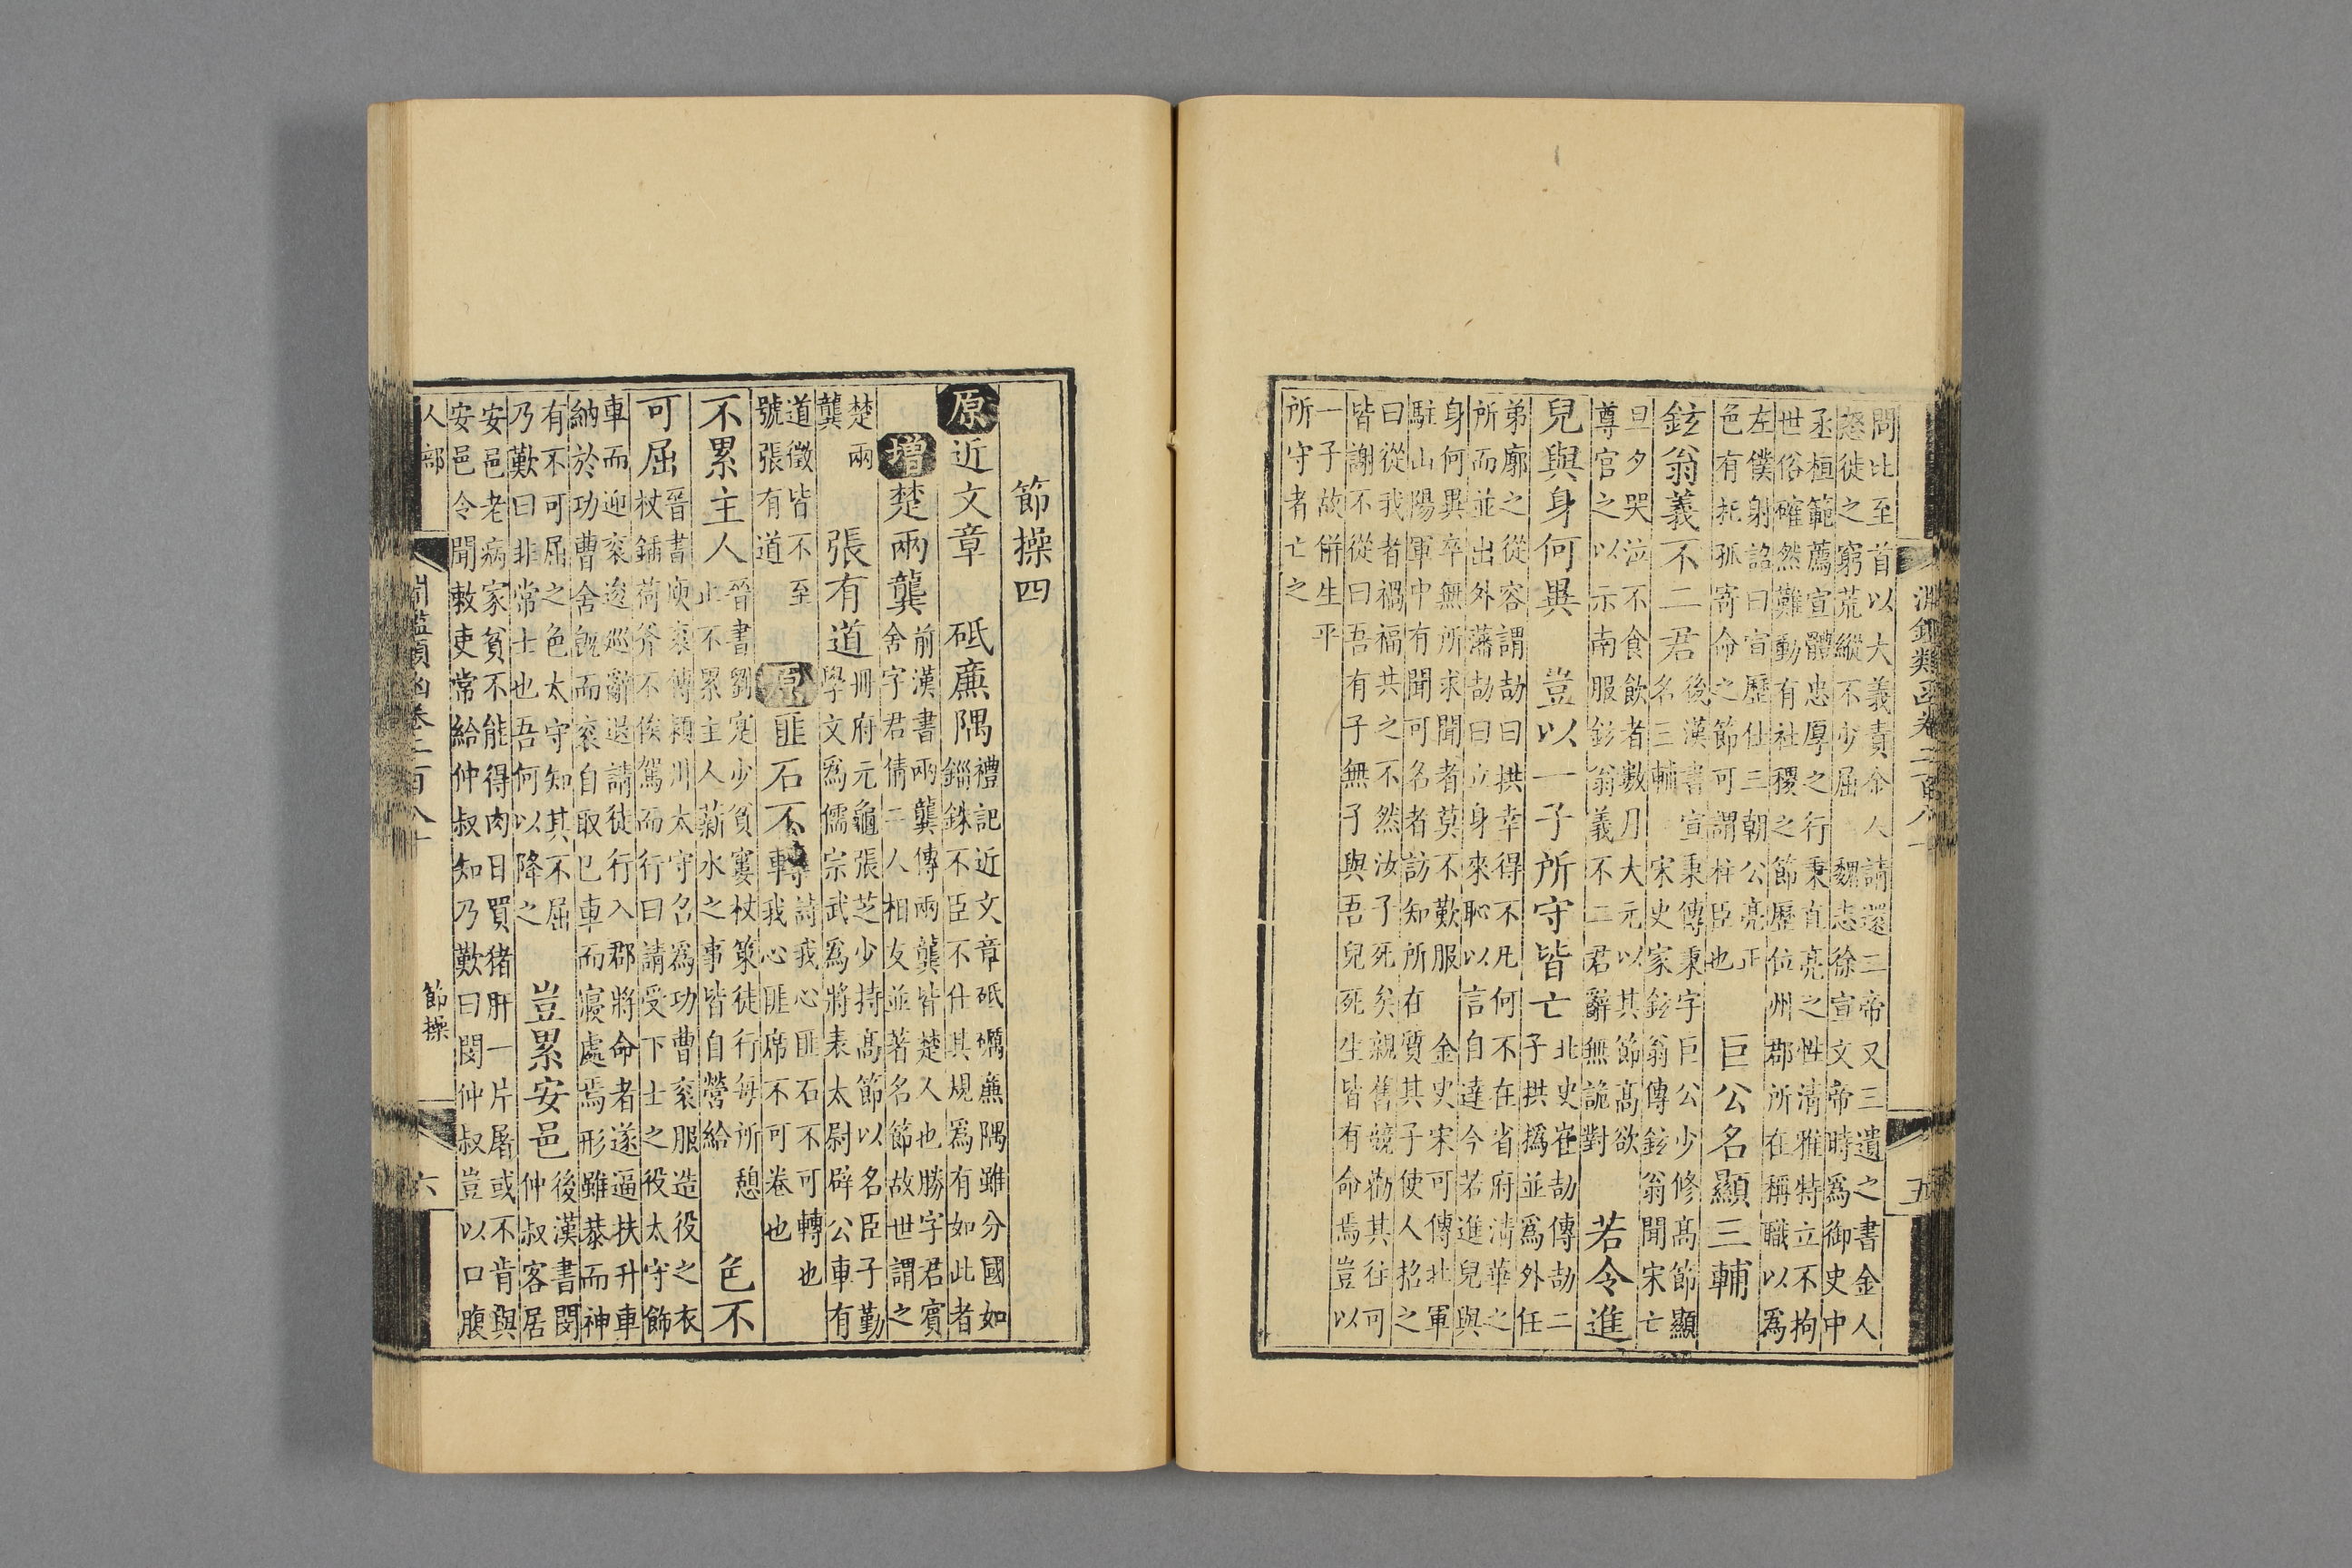 淵鑑類函卷二百八十 五
問比至首以大義責金人請還二帝又三遺之書金人
怒徙之窮荒縱不少屈 魏志徐宣文帝時爲御史中
丞桓範薦宣體忠厚之行秉直亮之性清雅特立不拘
世俗確然難動有社稷之節歷位州郡所在稱職以爲
左僕射詔曰宣歷仕三朝公亮正
色有托孤寄命之節可謂柱臣也
巨公名顯三輔
鉉翁義不二君
後漢書宣秉傳秉字巨公少修高節顯
名三輔 宋史家鉉翁傳鉉翁聞宋亡
旦夕哭泣不食飲者數月大元以其節高欲
尊官之以示南服鉉翁義不二君辭無詭對
若令進
兒與身何異 豈以一子所守皆亡
北史崔劼傳劼二
子拱撝並爲外任
弟廓之從容謂劼曰拱幸得不凡何不在省府清華之
所而並出外藩劼曰立身來恥以言自達今若進兒與
身何異卒無所求聞者莫不歎服 金史宋可傳北軍
駐山陽軍中有聞可名者訪知所在質其子使人招之
曰從我者禍福共之不然汝子死矣親舊競勸其往可
皆謝不從曰吾有子無子與吾兒死生皆有命焉豈以
一子故併生平
所守者亡之
節操四
原近文章 砥廉隅
禮記近文章砥礪廉隅雖分國如
錙銖不臣不仕其規爲有如此者
增楚兩龔
前漢書兩龔傳兩龔皆楚人也勝字君賓
舍字君倩二人相友並著名節故世謂之
楚兩
龔
張有道
冊府元龜張芝少持高節以名臣子勤
學文爲儒宗武爲將表太尉辟公車有
道徵皆不至
號張有道
原匪石不轉
詩我心匪石不可轉也
我心匪席不可卷也
不累主人
晉書劉寔少貧窶杖策徒行每所憩
止不累主人薪水之事皆自營給
色不
可屈
晉書庾衮傳潁川太守召爲功曹衮服造役之衣
杖鍤荷斧不俟駕而行曰請受下士之役太守飾
車而迎衮逡巡辭退請徒行入郡將命者遂逼扶升車
納於功曹舍旣而衮自取已車而寢處焉形雖恭而神
有不可屈之色太守知其不屈
乃歎曰非常士也吾何以降之
豈累安邑
後漢書閔
仲叔客居
安邑老病家貧不能得肉日買猪肝一片屠或不肯與
安邑令聞敕吏常給仲叔知乃歎曰閔仲叔豈以口腹
人部 淵鑑類函卷二百八十 節操 六